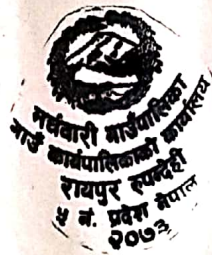 मर्चवारी गाउँपालिका
गाउँ कार्यपालिकाको कार्यालय
रायपुर रुपन्देही
५ नं. प्रदेश नेपाल
२०७३